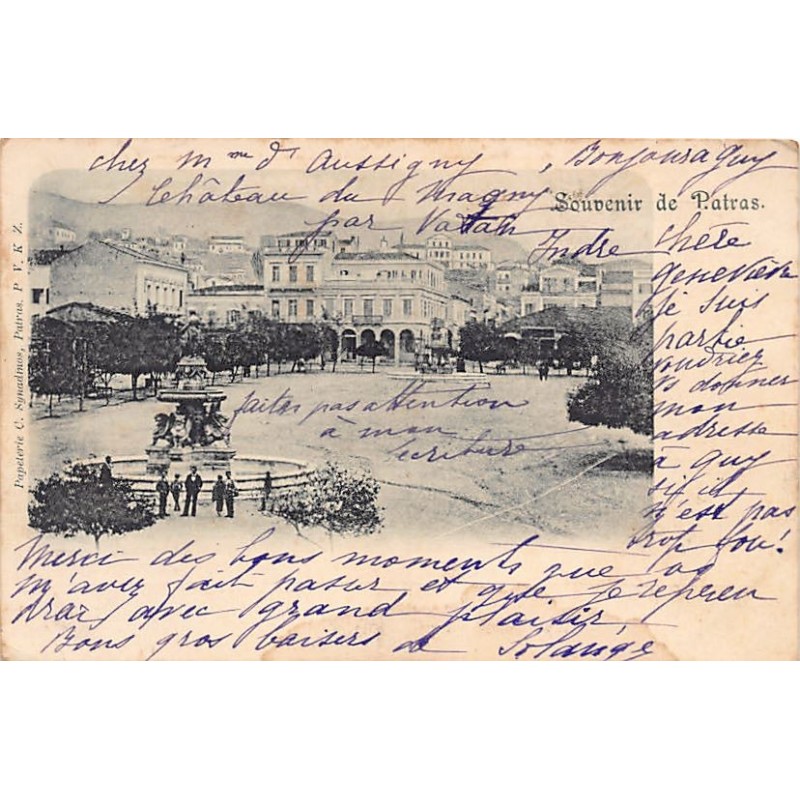 chez Mme d'Aussigny
Château du Magny
par Vatan
Indre
Bonjour à Guy
Souvenir de Patras.
chère
geneviève
je suis
partie
voudriez
vs donner
mon
adresse
à guy
s'il
n'est pas
trop fou!
faites pas attention
à mon
écriture
Merci des bons moments que
m'avez fait passer et que je repren
drai avec grand plaisir,
Bons gros baisers de Solange
Papeterie C. Synadinos, Patras. P V. K Z.